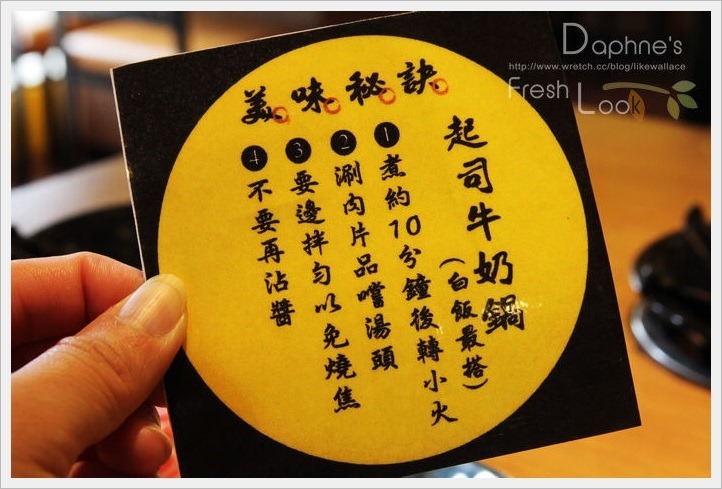 Daphne's
http://www.wretch.cc/blog/likewallace
Fresh Look
美味秘訣
起司牛奶鍋
(白飯最搭)
1 煮約10分鐘後轉小火
2 涮肉片品嚐湯頭
3 要邊拌勻以免燒焦
4 不要再沾醬